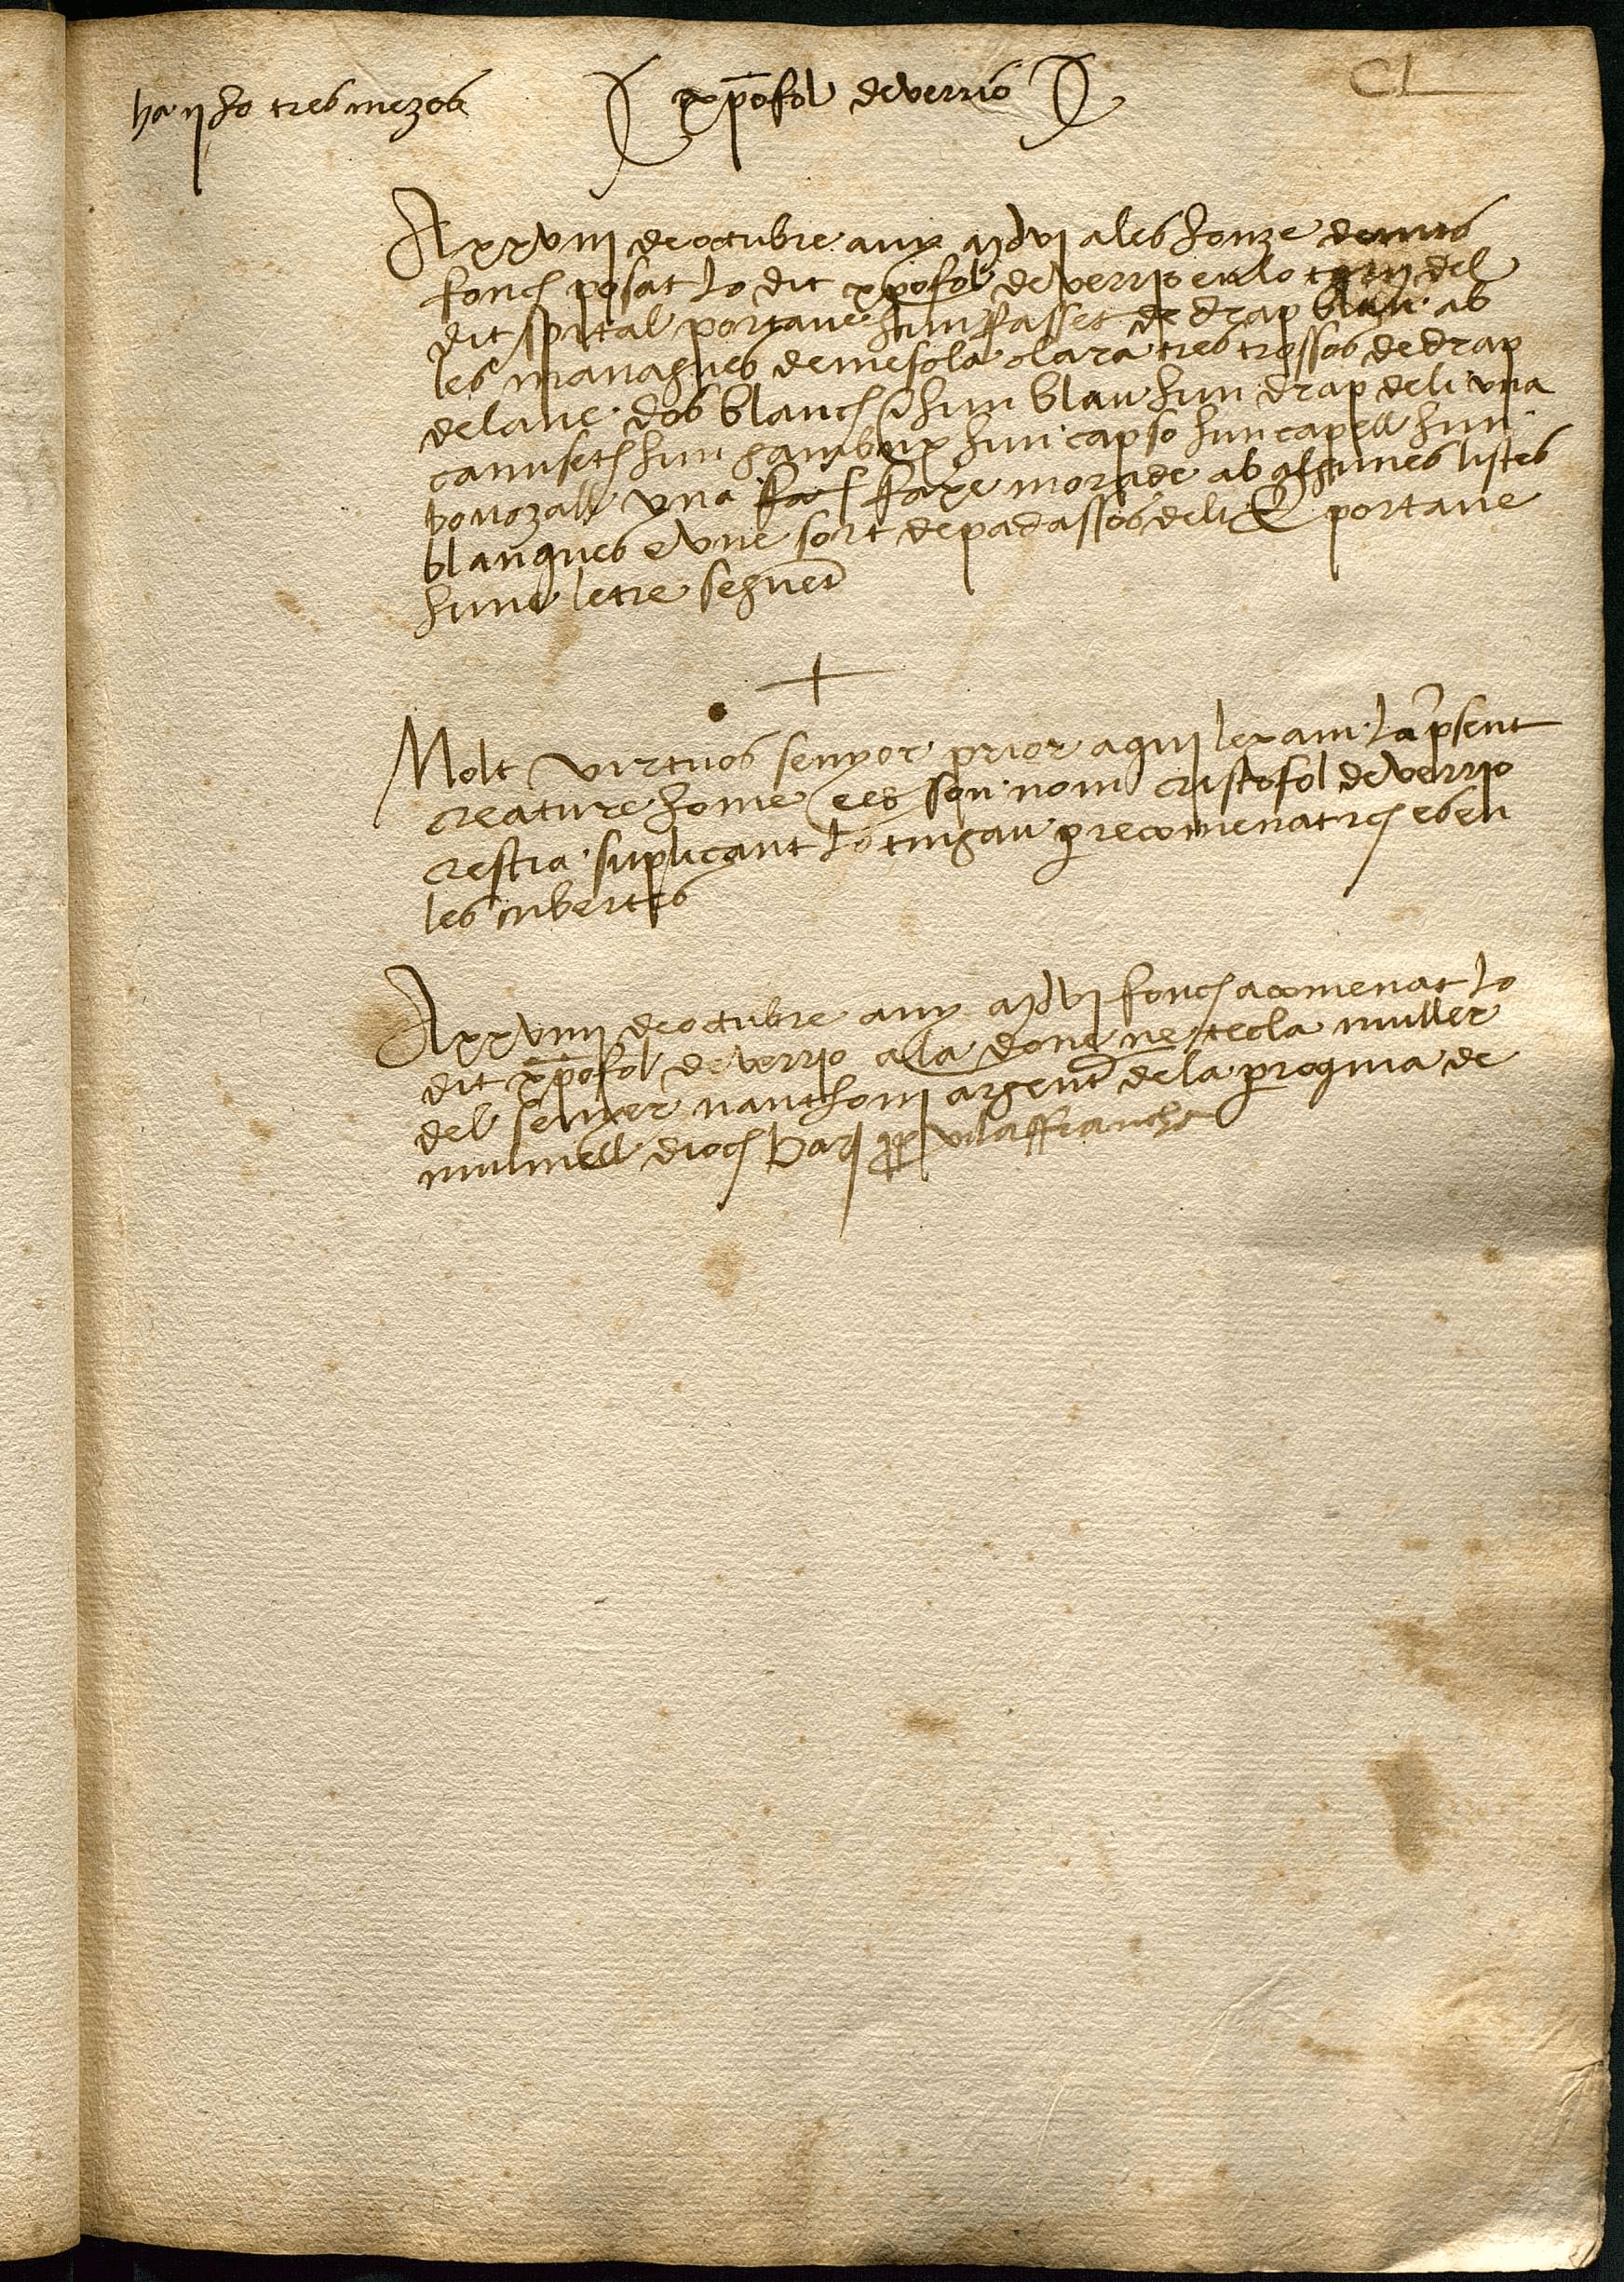 ha n ho tres mezos
xp̄ofol de verrio
CL
A xxviii de octubre any mdvj a les honze de nits
fonch posat lo dit xp̄ofol de verrio en lo torn del
dit spital portave hun ffasset de drap blau ab
les managues de mesola clara tres trossos de drap
de lane dos blanchs e hun blau hun drap de li una
camiseta hun gambux hun capso hun capell hun
bovozall una faxe morade ab algunes listes
blanques e une sort de padassos de li E portave
hune letre seguent
+
Molt virtuos senyor prior aqui lexam la p̄sent
creature home e es son nom cristofol de verrio
crestia suplicant lo tingau p recomenat es en
les cubertes
A xxviiii de octubre any mdvj fonch acomenat lo
dit xp̄ofol de verrio a la done ne tecla muller
del senyer n anthoni argent de la proquia de
muntmell dioch Bar prop vilaffrancha